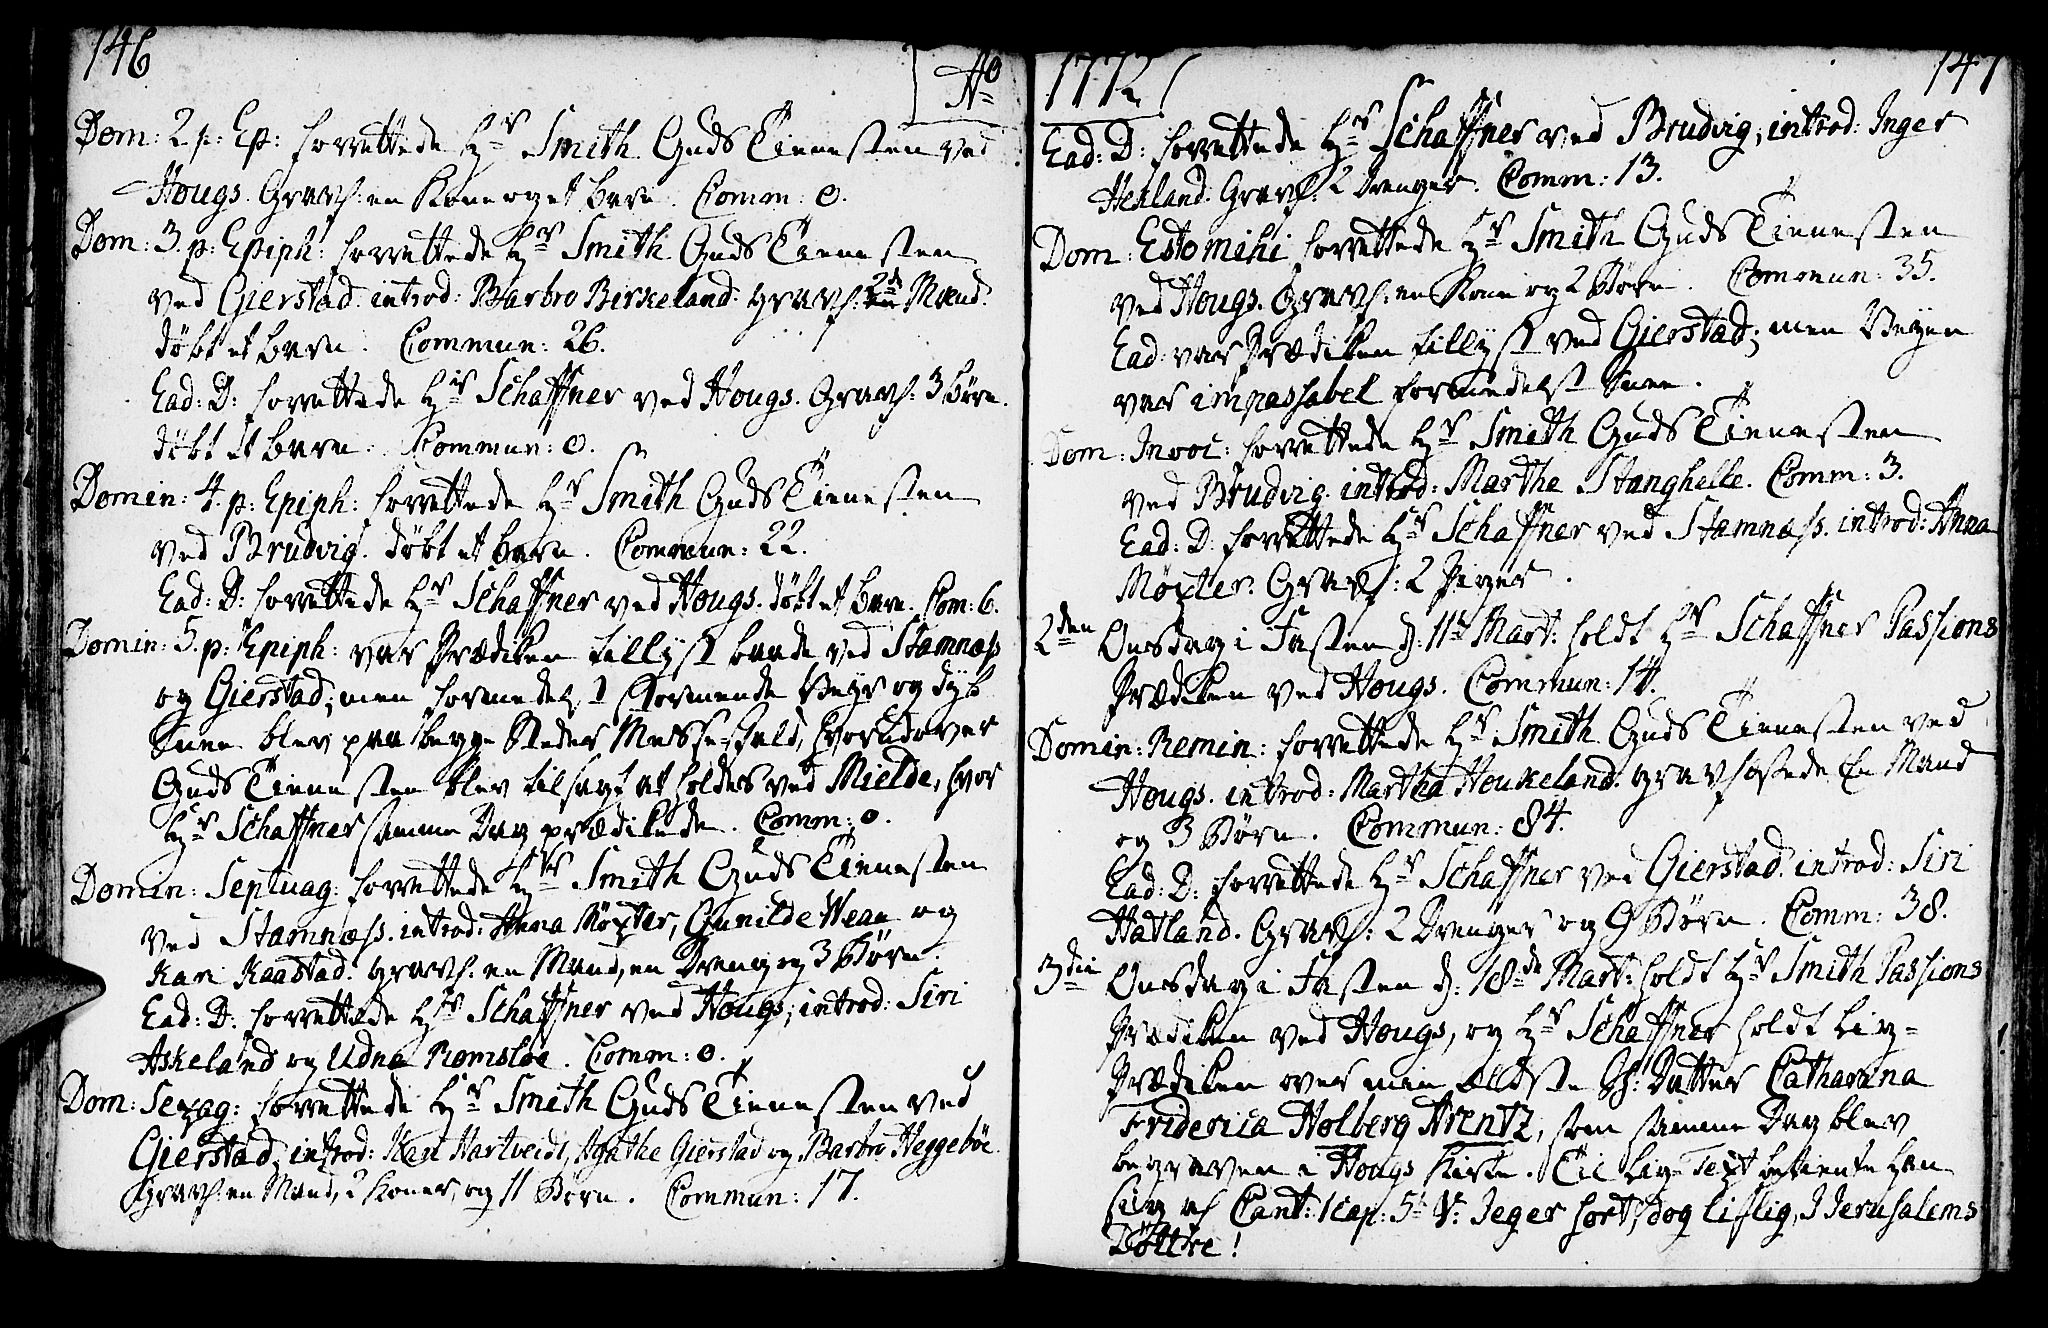 146
Ao
Dom: 2 p: Ep: forrettede Hr Smith Guds Tienesten ved
Hougs. Gravf: en Kone og et barn. Comm: 0.
Dom: 3. p: Epiph: forrettede Hr Smith Guds Tienesten
ved Gierstad. introd: Barbro Birkeland. gravf: 2de Mænd.
døbt et barn. Commun: 26.
Ead: D: forrettede Hr Schaffner ved Hougs. Gravf: 3 børn.
døbt et barn. Commun: 0.
Domin: 4. p: Epiph: forrettede Hr Smith Guds Tienesten
ved Brudvig. døbt et barn. Commun: 22.
Ead: D: forrettede Hr Schaffner ved Hougs. døbt et barn. Com: 6.
Domin: 5. p: Epiph: var Prædiken tillyst baade ved Stamnæss
og Gierstad; men formedelst stormende Veyr og dyb
Snee blev paa begge Steder Messe-Fald, hvorudover
Guds Tienesten blev tilsagt at holdes ved Mielde, hvor
Hr Schaffner samme Dag prædikede. Comm: 0.
Domin: Septuag: forrettede Hr Smith Guds Tienesten
ved Stamnæss. introd: Anna Møxter, Gunilde Wean og
Kari Kaastad. gravf: en Mand, en Dreng og 3 Børn.
Ead: D: forrettede Hr Schaffner ved Hougs; introd: Siri
Askeland og Udna Romsloe. Comm: 0.
Dom: Sexag: forrettede Hr Smith Guds Tienesten ved
Gierstad; introd: Kari Hartveidt, Agathe Gierstad og Barbro Heggebøe.
gravf: en Mand, 2 Koner, og 11 Børn. Commun: 17.
1772
147
Ead: D: forrettede Hr Schaffner ved Brudvig; introd: Inger
Hekland. Gravf: 2 Drenger. Comm: 13.
Dom: Estomihi forrettede Hr Smith Guds Tienesten
ved Hougs. Gravf: en Kone og 2 Børn. Commun: 35.
Ead: var Prædiken tillyst ved Gierstad; men Veyen
var impassabel formedelst Snee.
Dom: Invoc: forrettede Hr Smith Guds Tienesten
ved Brudvig. introd: Marthe Stanghelle. Comm: 3.
Ead: D: forrettede Hr Schaffner ved Stamnæss. introd: Anna
Møxter. Gravf: 2 Piger.
2den Onsdag i Fasten d: 11te Mart: holdt Hr Schaffner Passions
Prædiken ved Hougs. Commun: 14.
Domin: Remin: forrettede Hr Smith Guds Tienesten ved
Hougs. introd: Martha Houkeland. gravfæstede En Mand
og 3 Børn. Commun: 84.
Ead: D: forrettede Hr Schaffner ved Gierstad. introd: Siri
Hatland. Gravf: 2 Drenger og 9 Børn. Comm: 38.
3die Onsdag i Fasten d: 18de Mart: holdt Hr Smith Passions
Prædiken ved Hougs, og Hr Schaffner holdt Lig-
Prædiken over min ældste Datter Catharina
Friderica Holberg Arentz, som samme Dag blev
begraven i Hougs Kirke. Til Lig-Text betiente han
sig af Cant: 1 cap: 5. V: Jeg er sort, dog liflig, I Jerusalems
Døttre!